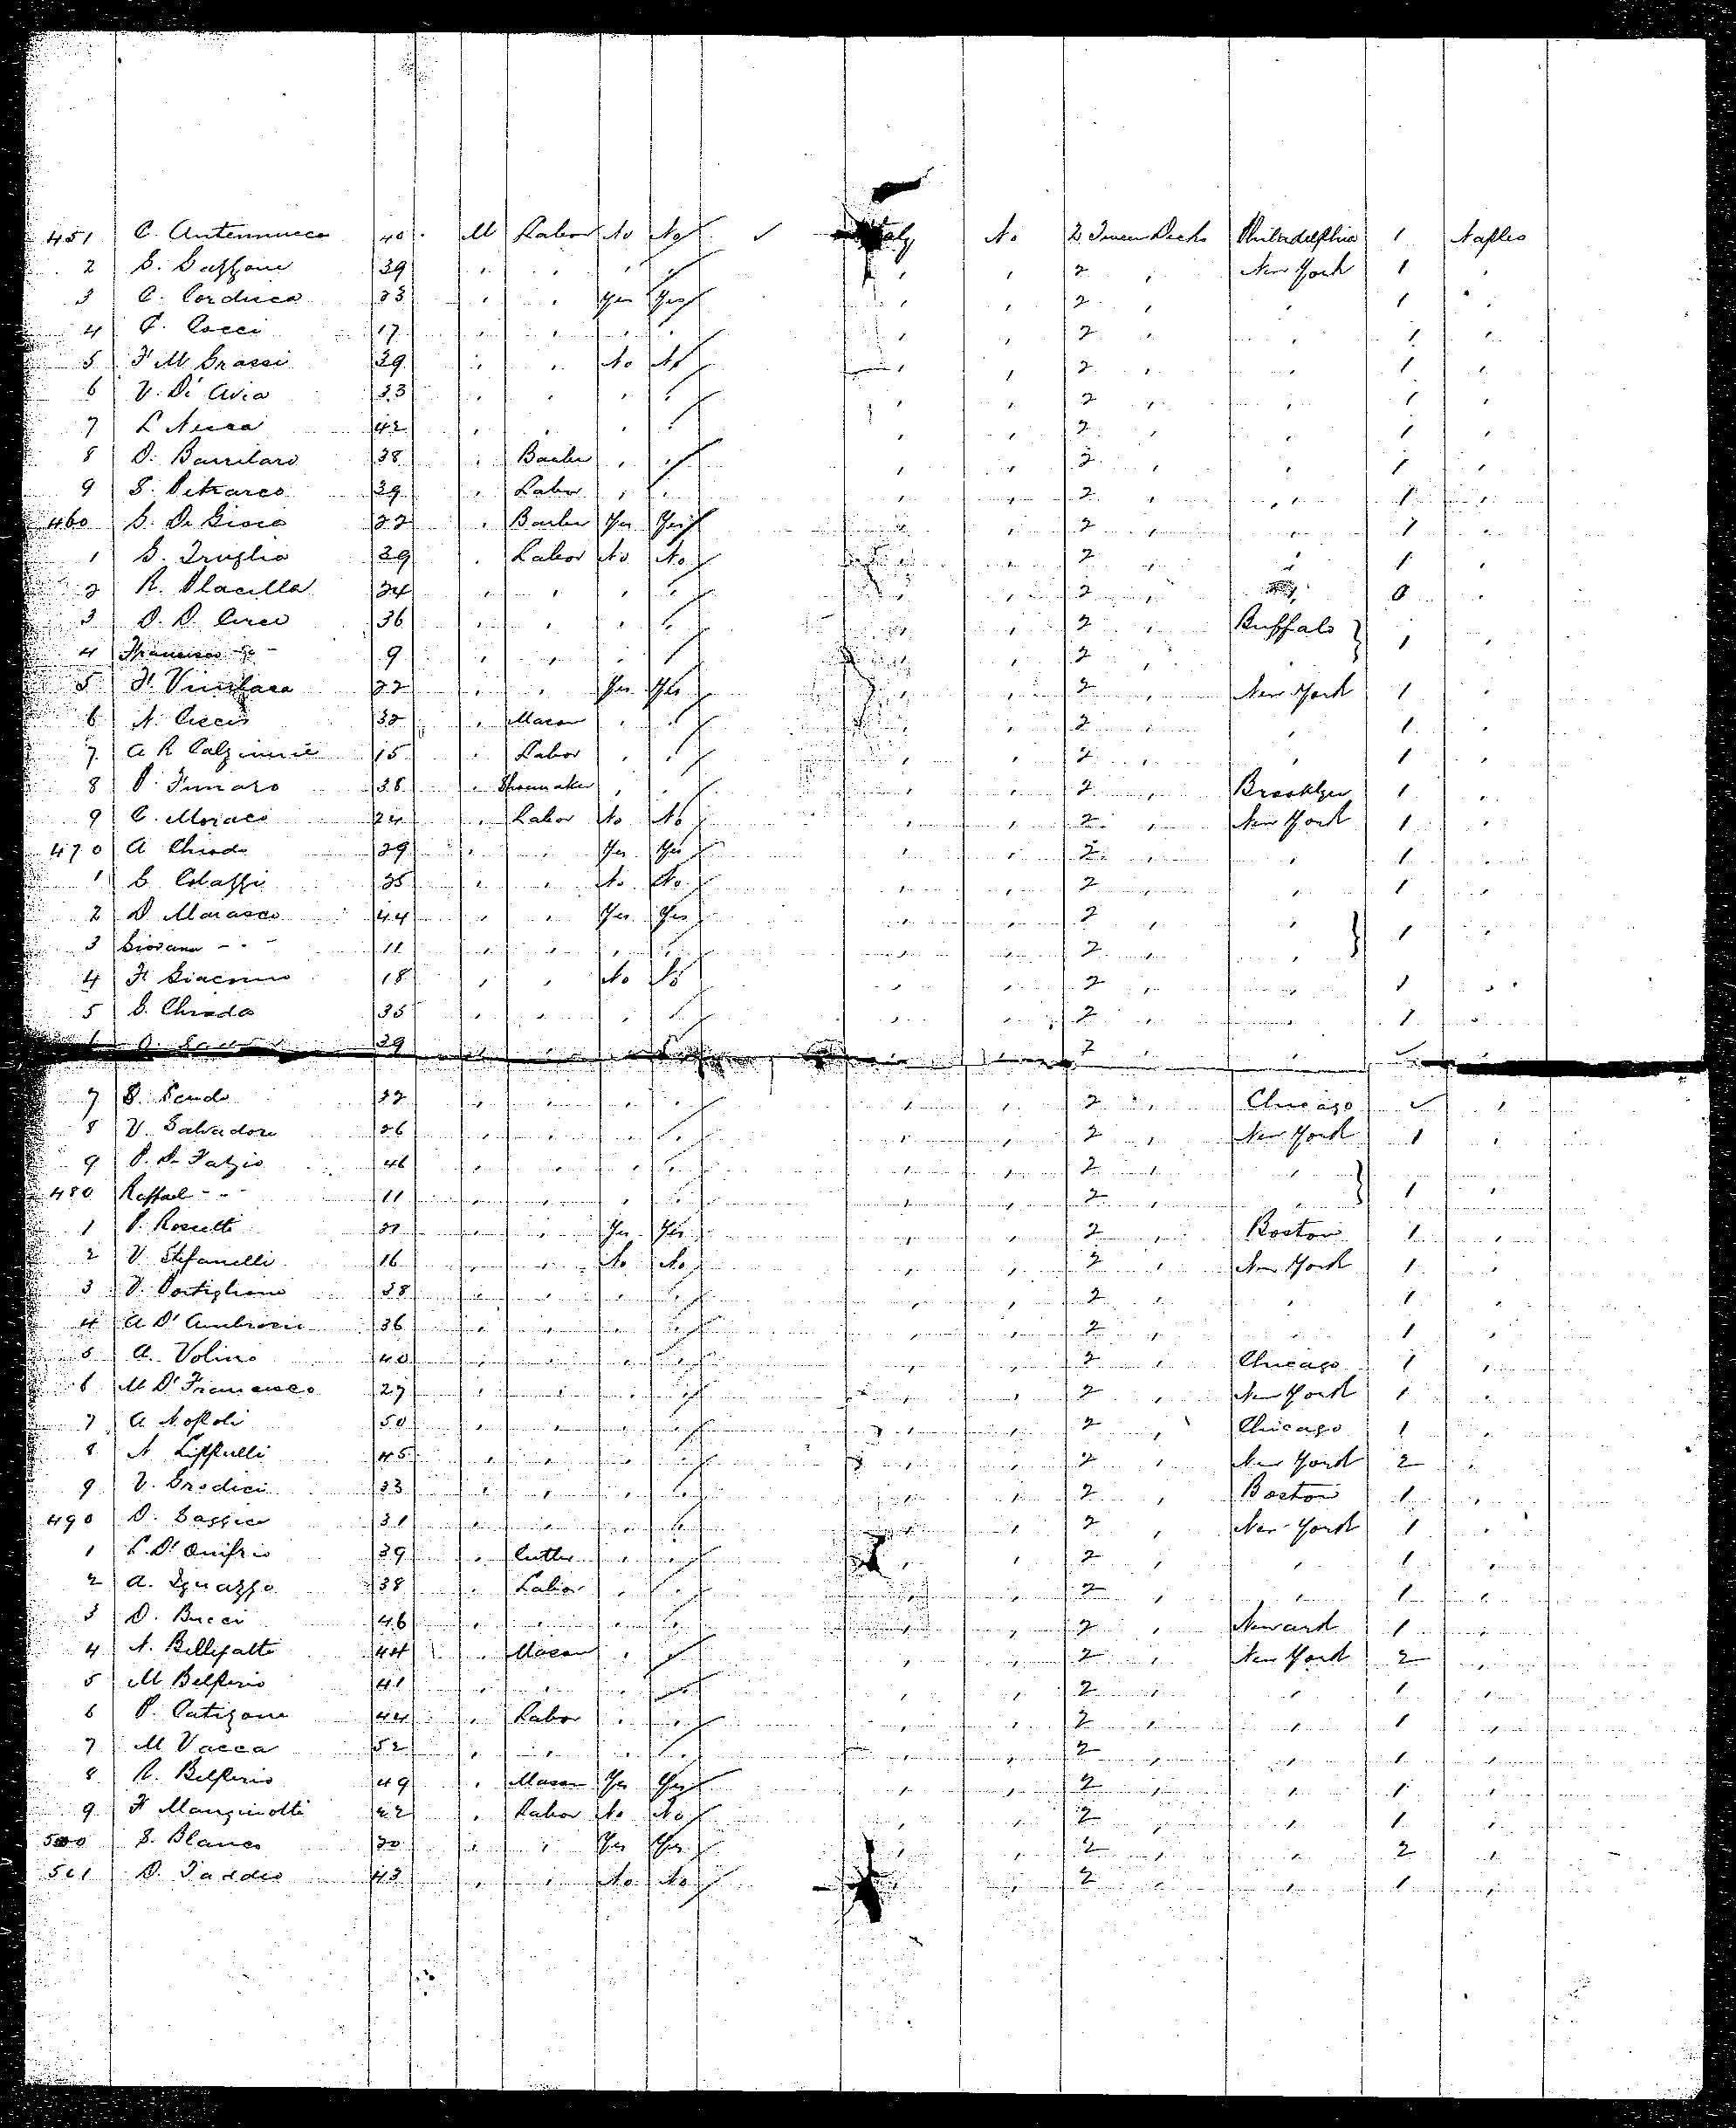 451 C. Antennucco 40 M Labor No No ✓ Italy No 2 Tween Decks Philadelphia 1 Naples
2 G. 39 " " " " " " 2 " New York 1 "
3 C. Corduca 33 " " Yes Yes " " 2 " " 1 "
4 Cocci 17 " " " " " " 2 " " 1 "
5 F M Grassi 39 " " No No " " 2 " " 1 "
6 V. Di Avia 33 " " " " " " 2 " " 1 "
7 L 42 " " " " " " 2 " " 1 "
8 D. Barrilaro 38 " Barber " " " " 2 " " 1 "
9 S. Petrarco 39 " Labor " " " " 2 " " 1 "
460 G. Di Gioio 22 " Barber Yes Yes " " 2 " " 1 "
1 G. Truglio 39 " Labor No No " " 2 " " 1 "
2 R. Placilla 24 " " " " " " 2 " 0 "
3 D. D. 36 " " " " " " 2 " Buffalo } 1 "
4 Francesco " 9 " " " " " " 2 " "
5 F. 22 " " Yes Yes " " 2 " New York 1 "
6 N. Ciccio 32 " Mason " " " " 2 " " 1 "
7 A R 15 " Labor " " " " 2 " " 1 "
8 P. Funaro 38 " Shoemaker " " " " 2 " Brooklyn 1 "
9 C. Moraco 24 " Labor No No " " 2 " New York 1 "
470 A Chiodo 29 " " Yes Yes " " 2 " " 1 "
1 35 " " No No " " 2 " " 1 "
2 D Marasco 44 " " Yes Yes " " 2 " " } 1 "
3 Giovanni - " - 11 " " " " " " 2 " "
4 F Giacomo 18 " " No No " " 2 " " 1 "
5 G. Chiodo 35 " " " " " " 2 " " 1 "
39 " " " " " 2 " " ✓ "
7 32 " " " " " " 2 " Chicago ✓ "
8 V. Salvadore 26 " " " " " " 2 " New York 1 "
9 P. Di Fazio 46 " " " " " " 2 " " } 1 "
480 Raffael - " - 11 " " " " " " 2 " "
1 P. Rossetti " " Yes Yes " " 2 " Boston 1 "
2 V. Stefanelli 16 " " No No " " 2 " New York 1 "
3 V. Portigliano 38 " " " " " " 2 " " 1 "
4 A D' Ambrosio 36 " " " " " " 2 " " 1 "
5 A. Volino 40 " " " " " " 2 " Chicago 1 "
6 M D' Francesco 27 " " " " " " 2 " New York 1 "
7 A Nofoli 50 " " " " " " 2 " Chicago 1 "
8 N 45 " " " " " " 2 " New York 2 "
9 V. Grodici 33 " " " " " " 2 " Boston 1 "
490 D. 31 " " " " " " 2 " New York 1 "
1 L. D' Onifrio 39 " Cutler " " " " 2 " " 1 "
2 A. Ignazzo 38 " Labor " " " " 2 " " 1 "
3 D. Bucci 46 " " " " " " 2 " Newark 1 "
4 N. Bellefatto 44 " Mason " " " " 2 " New York 2 "
5 M Belperio 41 " " " " " " 2 " " 1 "
6 P. Catizone 44 " Labor " " " " 2 " " 1 "
7 M Vacca 52 " " " " " " 2 " " 1 "
8 R. Belperio 49 " Mason Yes Yes " " 2 " " 1 "
9 F Manginotti 22 " Labor No No " " 2 " " 1 "
500 S. Blanco 30 " " Yes Yes " " 2 " " 2 "
501 D. Taddeo 43 " " No No " " 2 " " 1 "